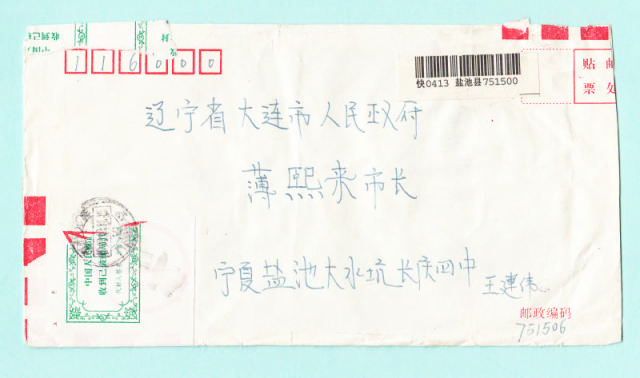 116000
快0413 盐池县751500
贴 邮
票 处
辽宁省大连市人民政府
薄熙来市长
宁夏盐池大水坑长庆四中 王建伟
邮政编码
751506